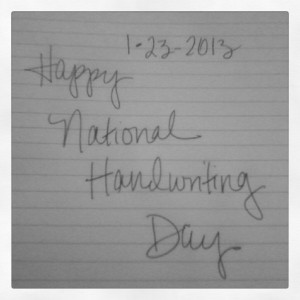 1-23-2013
Happy
National
Handwriting
Day